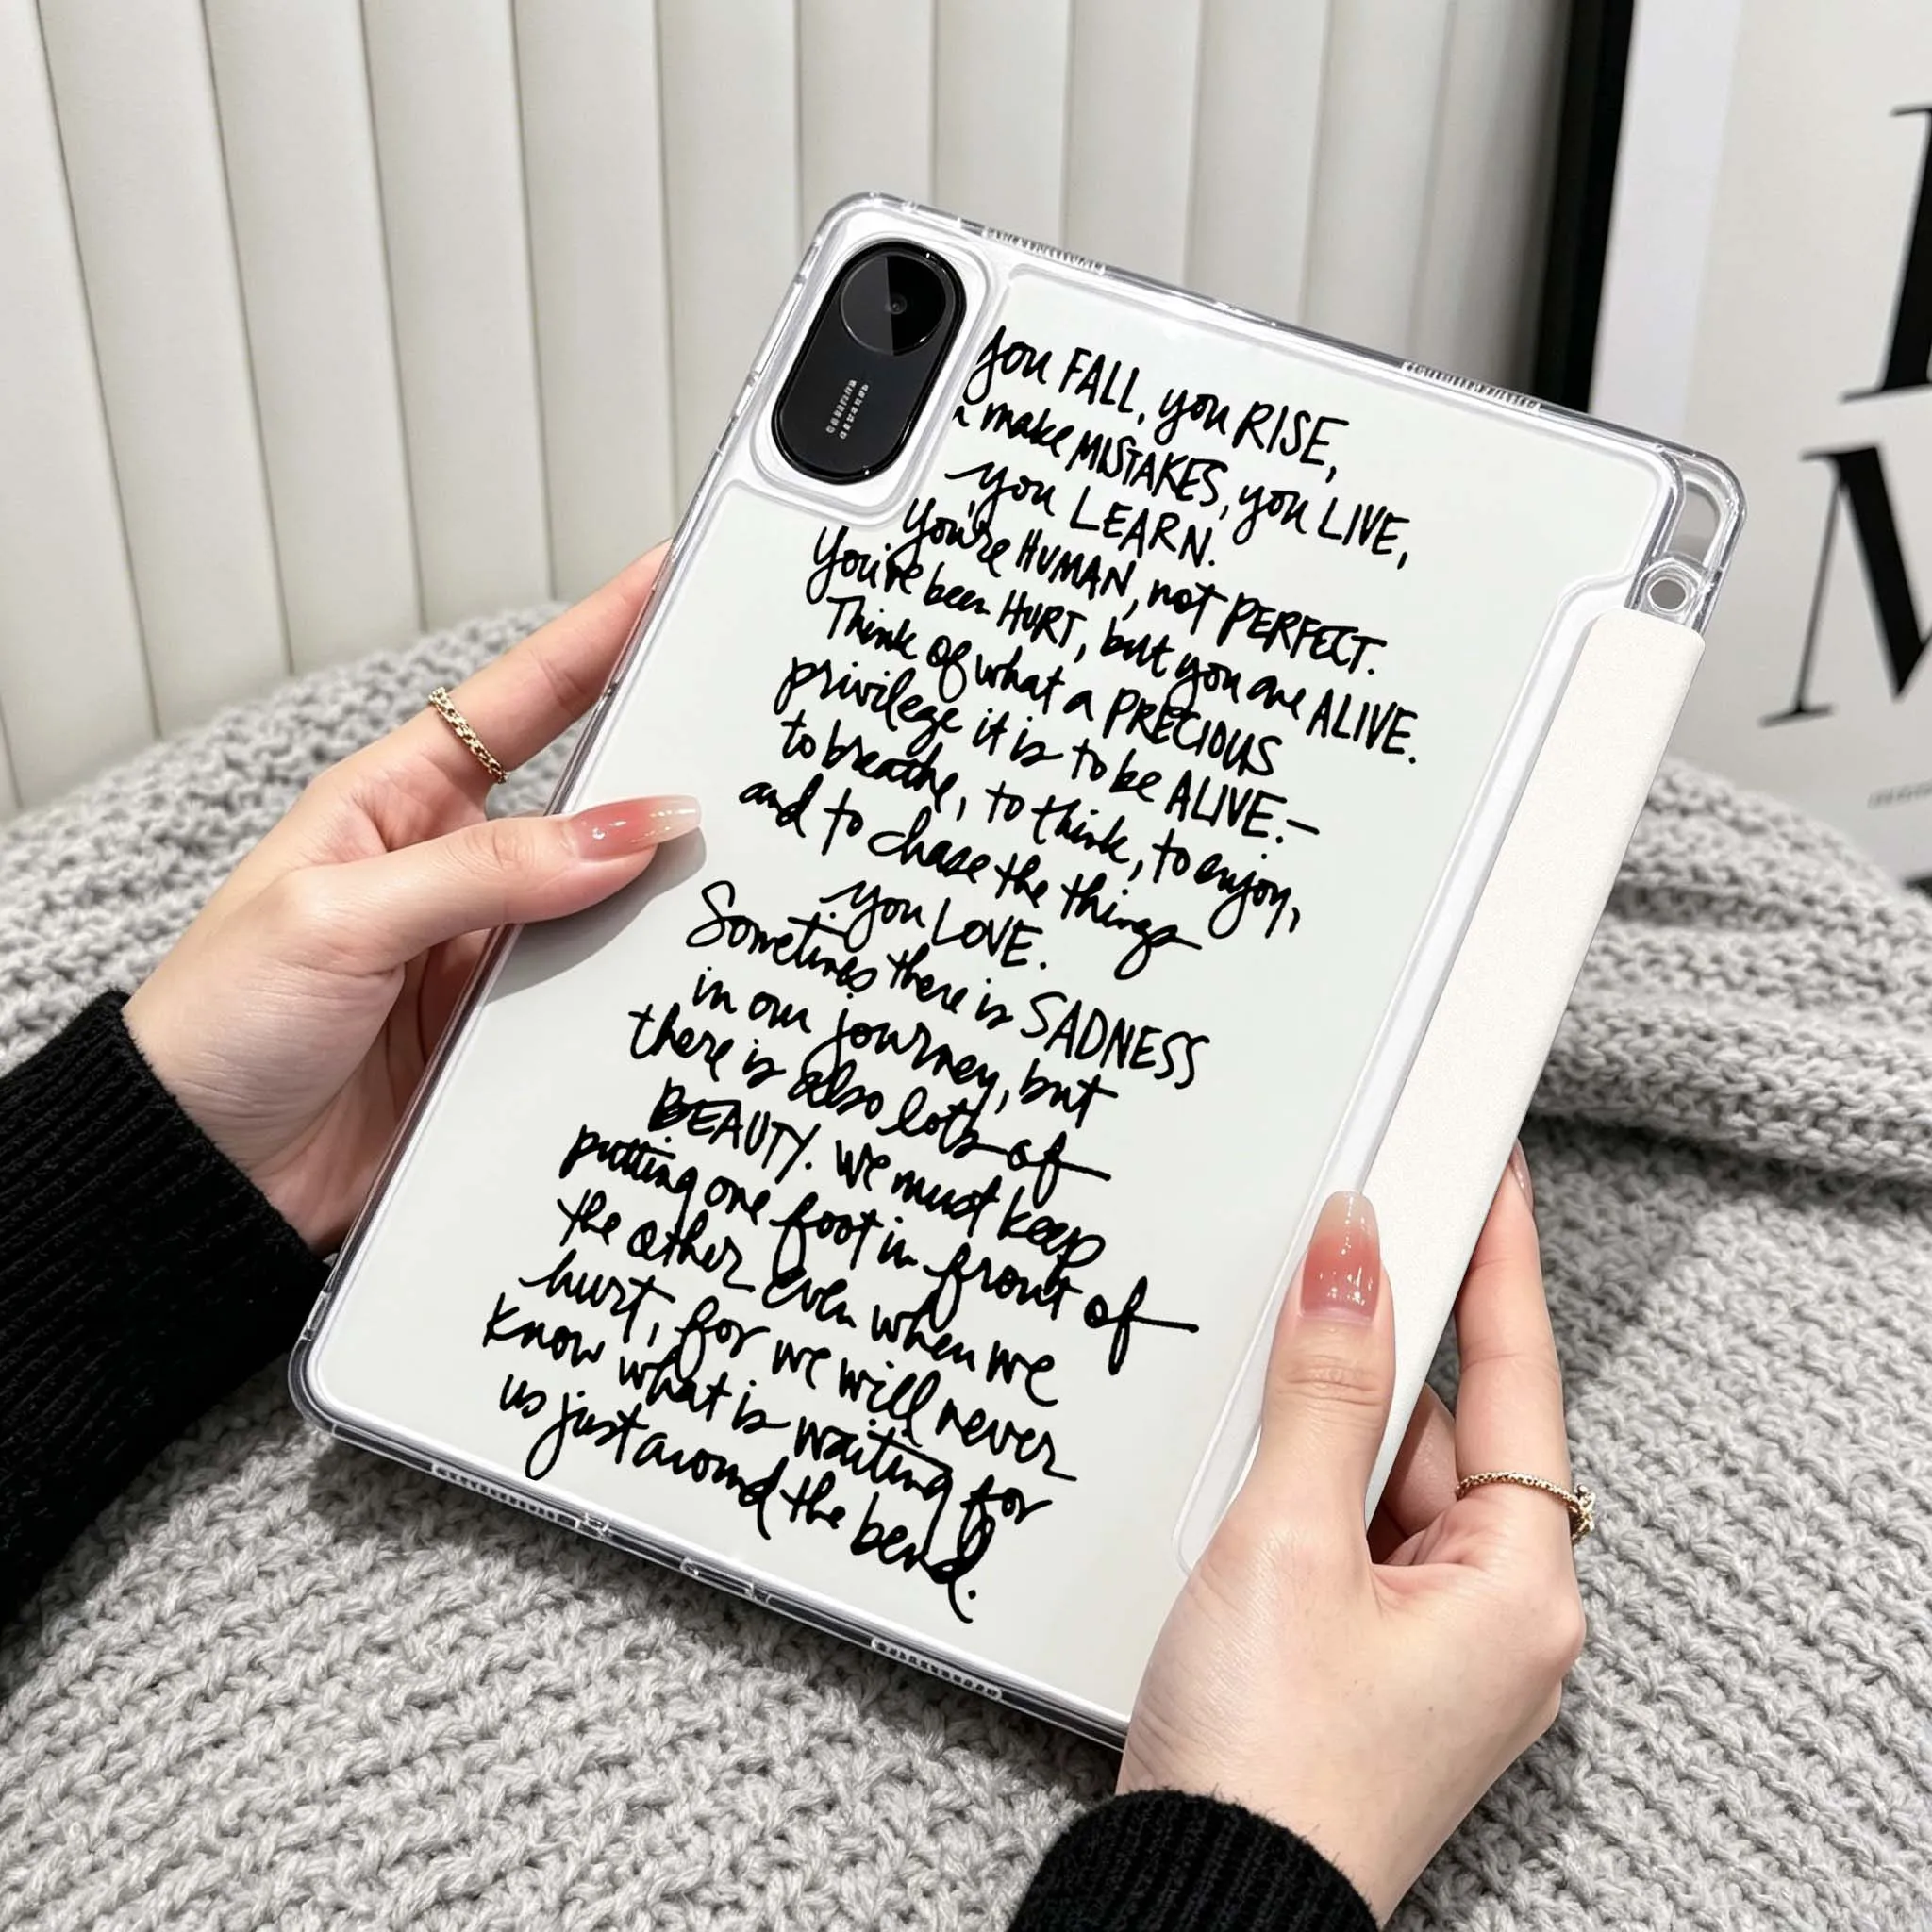 you FALL, you RISE,
make MISTAKES, you LIVE,
you LEARN.
You're HUMAN, not PERFECT.
You've been HURT, but you are ALIVE.
Think of what a PRECIOUS
privilege it is to be ALIVE.—
to breathe, to think, to enjoy,
and to chase the things
you LOVE.
Sometimes there is SADNESS
in our journey, but
there is also lots of
BEAUTY. We must keep
putting one foot in front of
the other even when we
hurt, for we will never
know what is waiting for
us just around the bend.
M